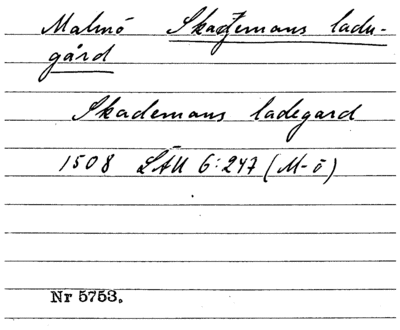 Malmö Skademans lade-
gård
Skademans ladegard
1508 LÄU 6:247 (M-ö)
Nr 5753.